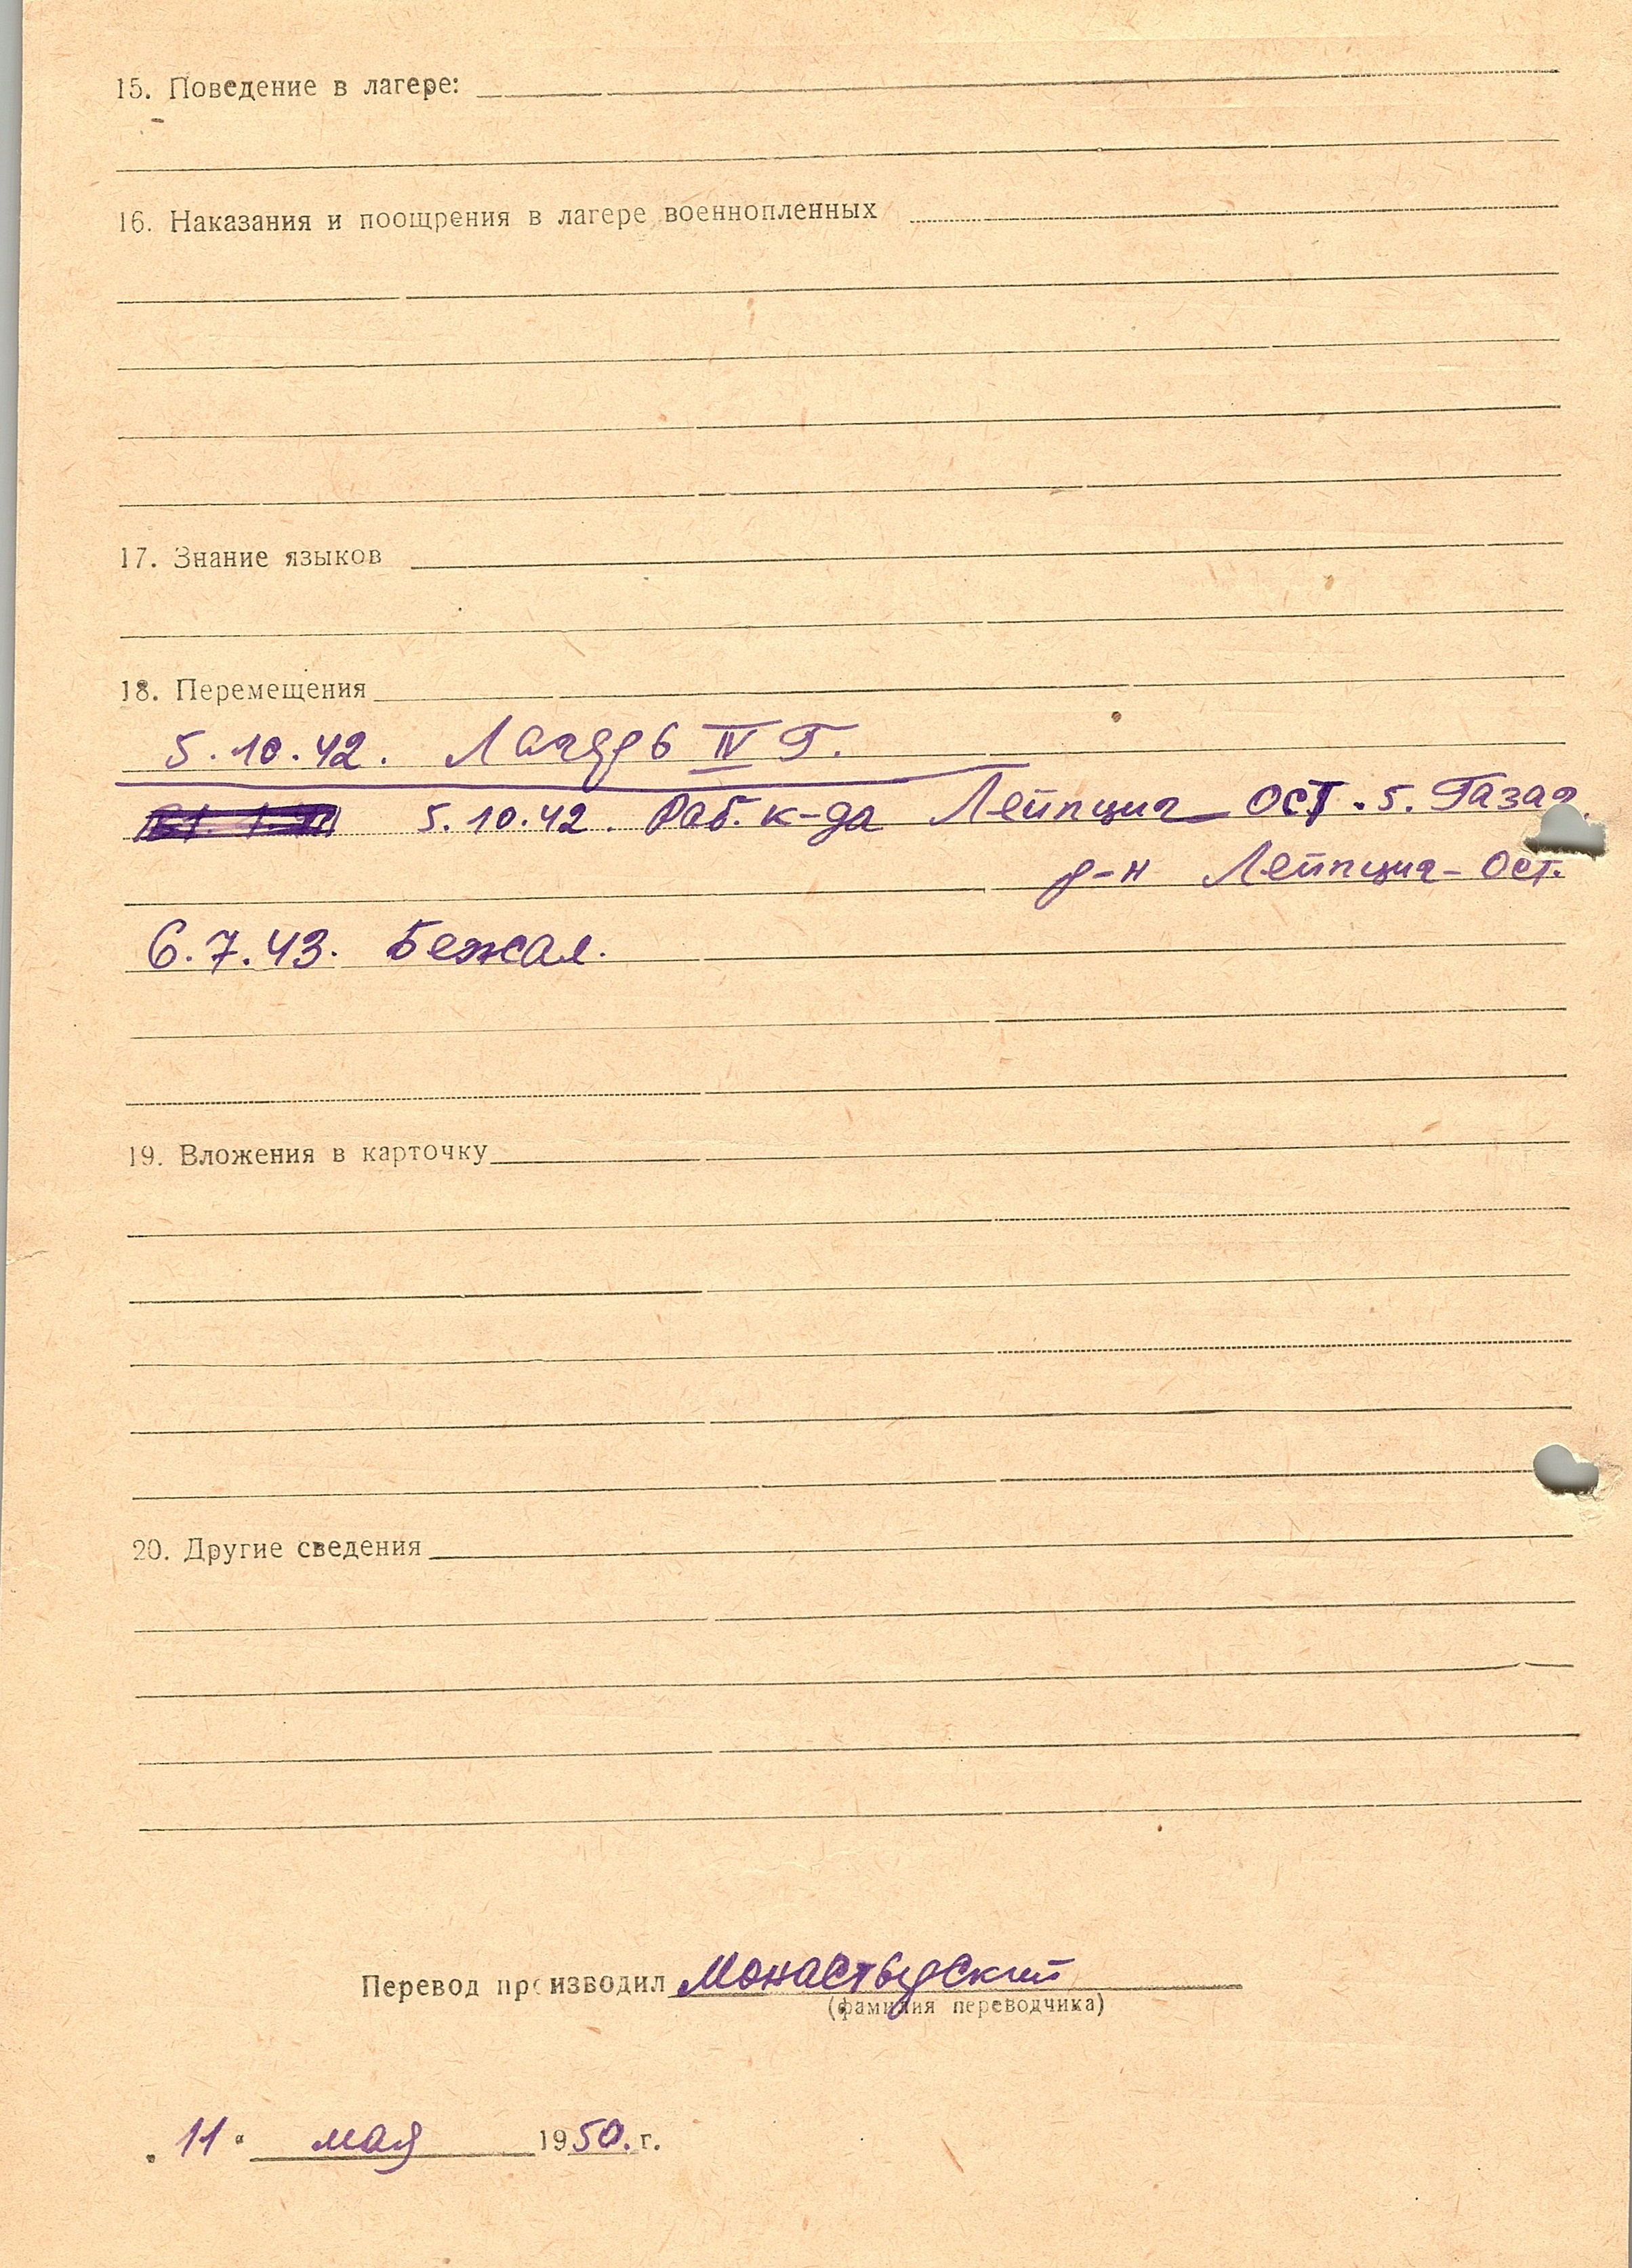 15. Поведение в лагере:
16. Наказания и поощрения в лагере военнопленных
17. Знание языков
18. Перемещения
5.10.42. Лагерь IV Г.
5.10.42. Раб. к-да Лейпциг Ост. 5.
р-н Лейпциг-Ост.
6.7.43. Бежал.
19. Вложения в карточку
20. Другие сведения
Перевод производил Монастырский
(фамилия переводчика)
„11“ мая 1950. г.